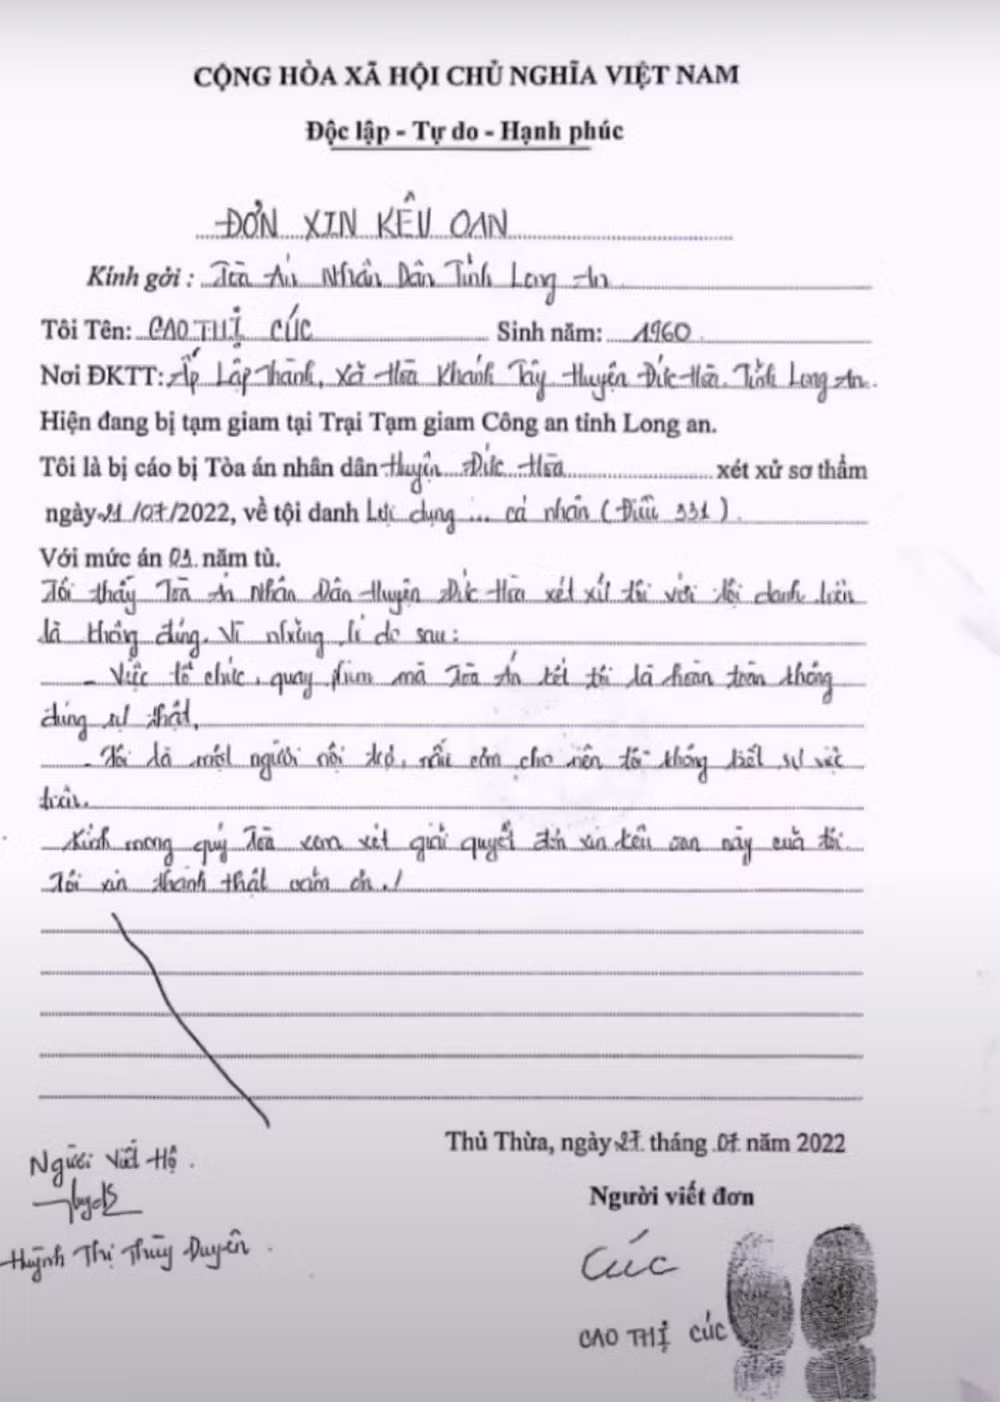 CỘNG HÒA XÃ HỘI CHỦ NGHĨA VIỆT NAM
Độc lập - Tự do - Hạnh phúc
ĐƠN XIN KÊU OAN
Kính gởi : Tòa Án Nhân Dân Tỉnh Long An
Tôi Tên: CAO THỊ CÚC Sinh năm: 1960
Nơi ĐKTT: Ấp Lập Thành, Xã Hòa Khánh Tây, Huyện Đức Hòa. Tỉnh Long An.
Hiện đang bị tạm giam tại Trại Tạm giam Công an tỉnh Long an.
Tôi là bị cáo bị Tòa án nhân dân Huyện Đức Hòa xét xử sơ thẩm
ngày 21/07/2022, về tội danh Lợi dụng ... cá nhân (Điều 331).
Với mức án 03 năm tù.
Tôi thấy Tòa Án Nhân Dân Huyện Đức Hòa xét xử tôi với tội danh trên
là không đúng. Vì những lí do sau:
- Việc tổ chức, quay phim mà Tòa Án kết tôi là hoàn toàn không
đúng sự thật.
- Tôi là một người nội trợ, nấu cơm cho nên tôi không biết sự việc
trên.
Kính mong quý Tòa xem xét giải quyết đơn xin kêu oan này của tôi.
Tôi xin thành thật cảm ơn./
Thủ Thừa, ngày 27 tháng 07 năm 2022
Người Viết Hộ.
Người viết đơn
Huỳnh Thị Thùy Duyên.
Cúc
CAO THỊ CÚC